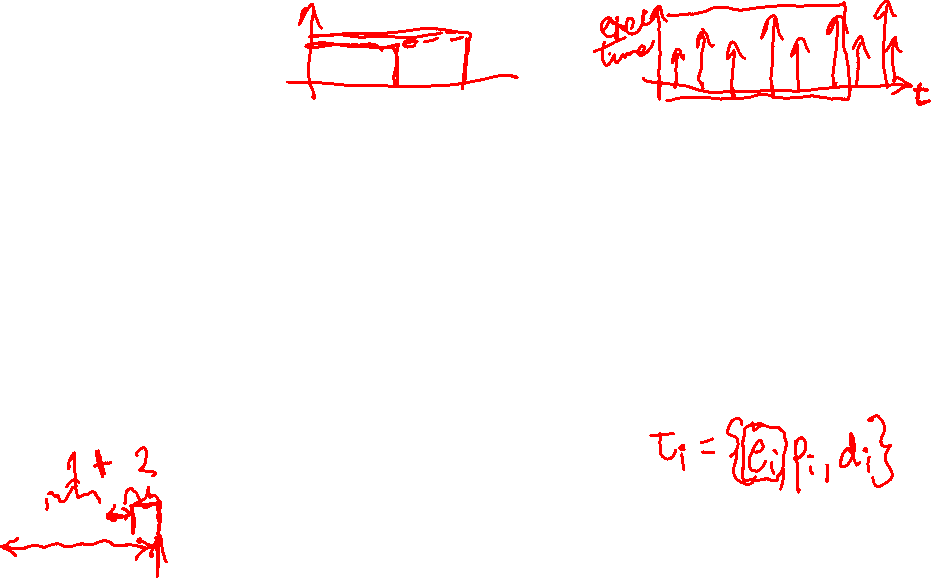 exec
time
t
τi = {ei, pi, di}
1 + 2